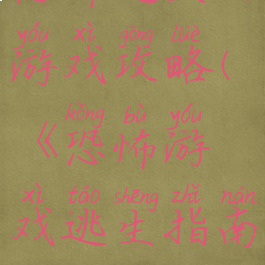 yóu xì gōng lüè
游戏攻略(
kǒng bù yóu
《恐怖游
xì táo shēng zhǐ nán
戏逃生指南